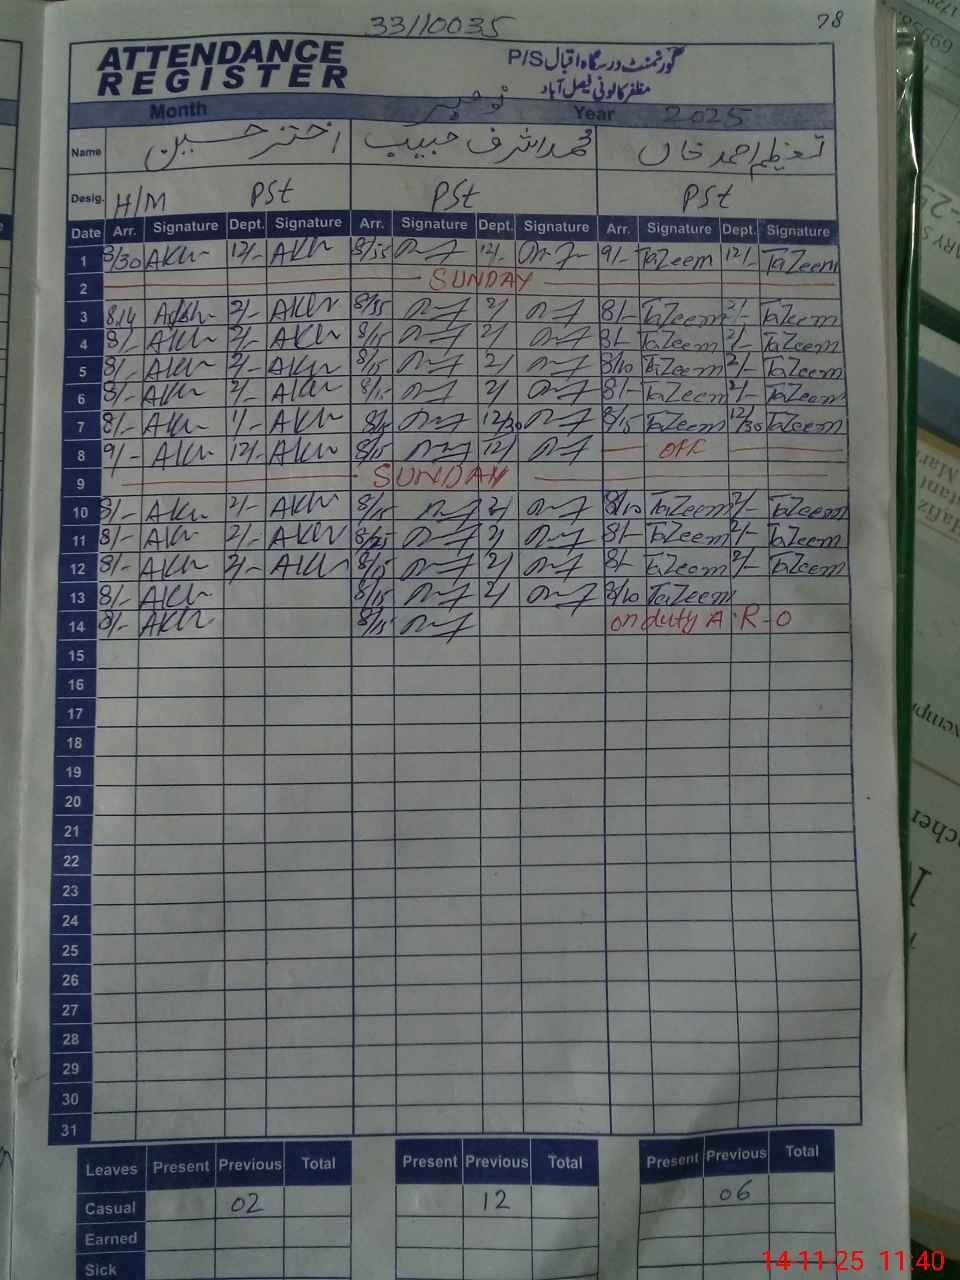 33110035
78
ATTENDANCE REGISTER
P/S گورنمنٹ درسگاہ اقبال
مظفر کالونی فیصل آباد
Month نومبر Year 2025
Name اختر حسین محمد اشرف حبیب تعظیم احمد خاں
Desig. H/M PSt PSt PSt
Date Arr. Signature Dept. Signature Arr. Signature Dept. Signature Arr. Signature Dept. Signature
1 8/30 12/- 8/35 12/- 9/- TaZeem 12/- TaZeem
2 SUNDAY
3 8.14 2/- 8/35 2/ 8/- TaZeem 2/- TaZeem
4 8/- 2/- 8/15 2/ 8/- TaZeem 2/- TaZeem
5 8/- 2/- 8/15 2/ 8/10 TaZeem 2/- TaZeem
6 8/- 2/- 2/ 8/- TaZeem 2/- TaZeem
7 8/- 1/- 12/30 8/15 TaZeem 12/30 TaZeem
8 9/- 12/- 8/15 12/ OFF
9 SUNDAY
10 8/- 2/- 8/15 2/ 8/10 TaZeem 2/- TaZeem
11 8/- 2/- 8/25 2/ 8/- TaZeem 2/- TaZeem
12 8/- 2/- 8/15 2/ 8/- TaZeem 2/- TaZeem
13 8/- 8/15 2/ 8/10 TaZeem
14 8/- 8/15 on duty A.R-O
15
16
17
18
19
20
21
22
23
24
25
26
27
28
29
30
31
Leaves Present Previous Total Present Previous Total Present Previous Total
Casual 02 12 06
Earned
Sick
14-11-25 11:40